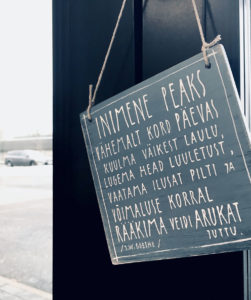 INIMENE PEAKS
VÄHEMALT KORD PÄEVAS
KUULMA VÄIKEST LAULU,
LUGEMA HEAD LUULETUST,
VAATAMA ILUSAT PILTI JA
VÕIMALUSE KORRAL
RÄÄKIMA VEIDI ARUKAT
JUTTU.
/J.W.GOETHE/